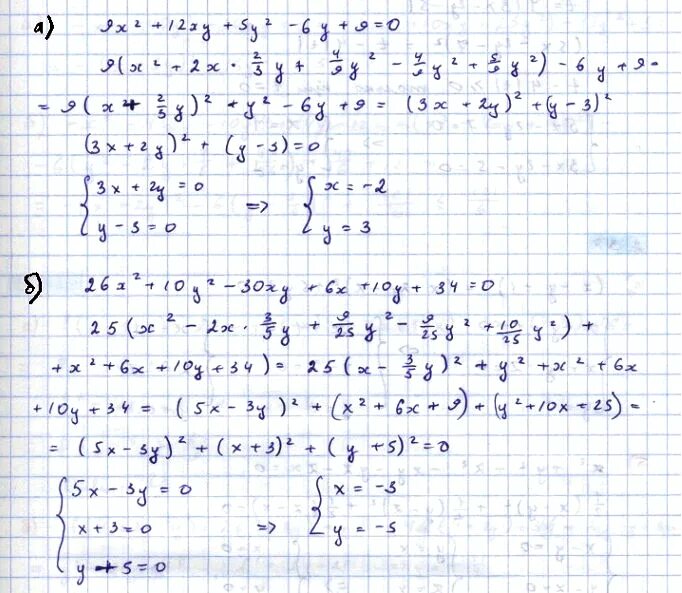 а) 9x² + 12xy + 5y² - 6y + 9 = 0
9(x² + 2x · 2/3 y + 4/9 y² - 4/9 y² + 5/9 y²) - 6y + 9 =
= 9(x + 2/3 y)² + y² - 6y + 9 = (3x + 2y)² + (y - 3)²
(3x + 2y)² + (y - 3) = 0
{ 3x + 2y = 0 { x = -2
=>
y - 3 = 0 y = 3
б) 26x² + 10y² - 30xy + 6x + 10y + 34 = 0
25(x² - 2x · 3/5 y + 9/25 y² - 9/25 y² + 10/25 y²) +
+ x² + 6x + 10y + 34) = 25(x - 3/5 y)² + y² + x² + 6x
+ 10y + 34 = (5x - 3y)² + (x² + 6x + 9) + (y² + 10x + 25) =
= (5x - 3y)² + (x + 3)² + (y + 5)² = 0
{ 5x - 3y = 0 { x = -3
x + 3 = 0 => y = -5
y + 5 = 0